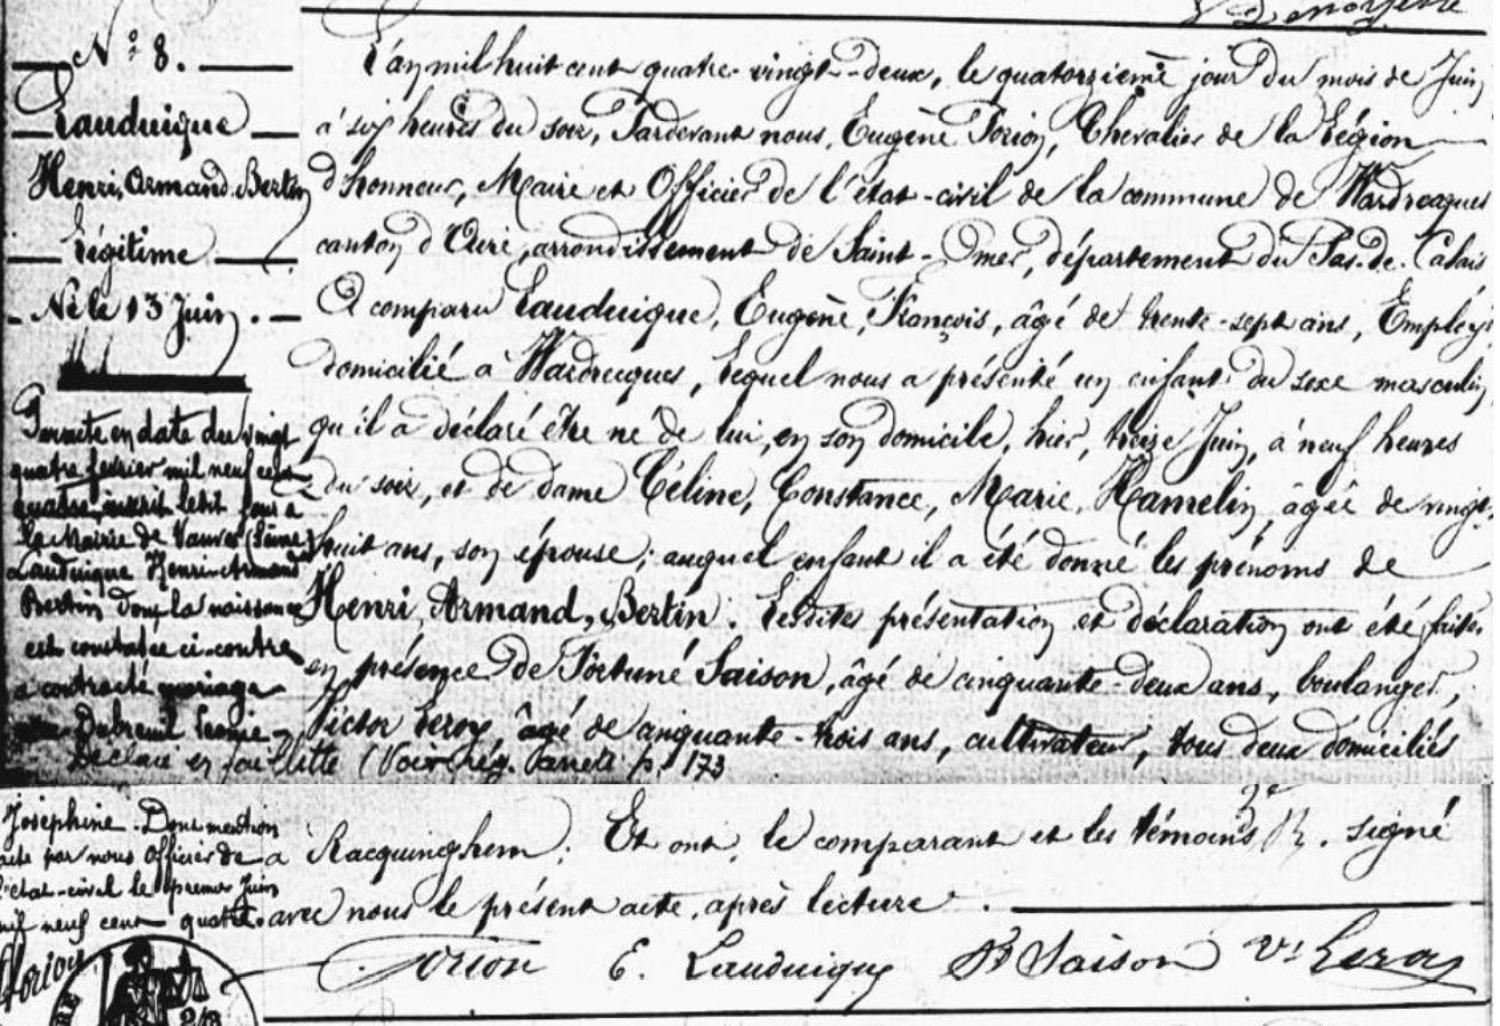 N° 8.
Lauduique
Henri, Armand, Bertin
Légitime
Né le 13 Juin.
Par acte en date du vingt
quatre février mil neuf cent
quatre, inscrit ledit jour à
la Mairie de Vanves (Seine)
Lauduique Henri Armand
Bertin dont la naissance
est constatée ci-contre
a contracté mariage
avec Dubreuil Leonie
Joséphine. Dont mention
faite par nous Officier de
l'état-civil le premier Juin
mil neuf cent quatre.
Torion
L'an mil huit cent quatre-vingt-deux, le quatorzième jour du mois de Juin,
à six heures du soir, Pardevant nous, Eugène Torion, Chevalier de la Légion
d'honneur, Maire et Officier de l'état-civil de la commune de Wardrecques
canton d'Aire, arrondissement de Saint-Omer, département du Pas-de-Calais
A comparu Lauduique, Eugène, François, âgé de trente-sept ans, Employé,
domicilié à Wardrecques, lequel nous a présenté un enfant du sexe masculin,
qu'il a déclaré être né de lui, en son domicile, hier, treize Juin, à neuf heures
du soir, et de dame Céline, Constance, Marie, Hamelin, âgée de vingt-
huit ans, son épouse; auquel enfant il a été donné les prénoms de
Henri, Armand, Bertin. Lesdites présentation et déclaration ont été faites
en présence de Fortuné Saison, âgé de cinquante-deux ans, boulanger,
Victor Leroy, âgé de cinquante-trois ans, cultivateur, tous deux domiciliés
(Voir rég. p. 173
à Racquinghem. Et ont, le comparant et les témoins, signé
avec nous le présent acte, après lecture.
Torion E. Lauduique Saison Vr Leroy